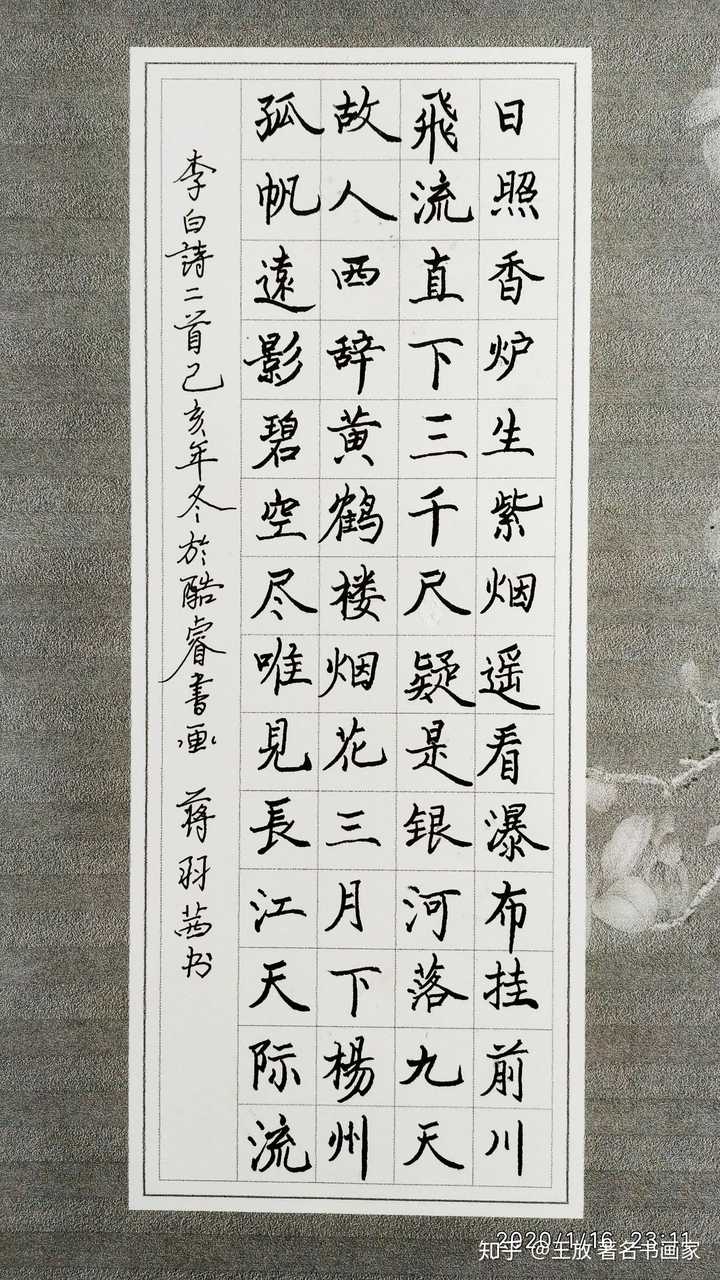 日照香炉生紫烟遥看瀑布挂前川
飛流直下三千尺疑是银河落九天
故人西辞黄鹤楼烟花三月下楊州
孤帆遠影碧空尽唯見長江天际流
李白詩二首己亥年冬於酷睿书画 蒋羽茜书
2020/1/16 23:11
知乎 @王放 著名书画家